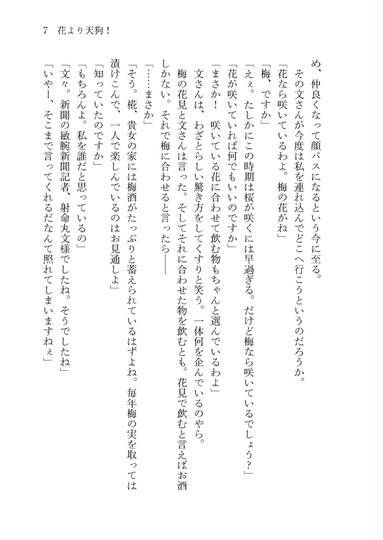 7　花より天狗！
め、仲良くなって顔パスになるという今に至る。
　その文さんが今度は私を連れ込んでどこへ行こうというのだろうか。
「花なら咲いているわよ。梅の花がね」
「梅、ですか」
「ええ。たしかにこの時期は桜が咲くには早過ぎる。だけど梅なら咲いているでしょう？」
「花が咲いていれば何でもいいのですか」
「まさか！　咲いている花に合わせて飲む物もちゃんと選んでいるわよ」
　文さんは、わざとらしい驚き方をしてくすりと笑う。一体何を企んでいるのやら。
　梅の花見と文さんは言った。そしてそれに合わせた物を飲むとも。花見で飲むと言えばお酒
しかない。それで梅に合わせると言ったら――
「……まさか」
「そう。椛、貴女の家には梅酒がたっぷりと蓄えられているはずよね。毎年梅の実を取っては
漬けこんで、一人で楽しんでいるのはお見通しよ」
「知っていたのですか」
「もちろんよ。私を誰だと思っているの」
「文々。新聞の敏腕新聞記者、射命丸文様でしたね。そうでしたね」
「いやー、そこまで言ってくれるだなんて照れてしまいますねぇ」